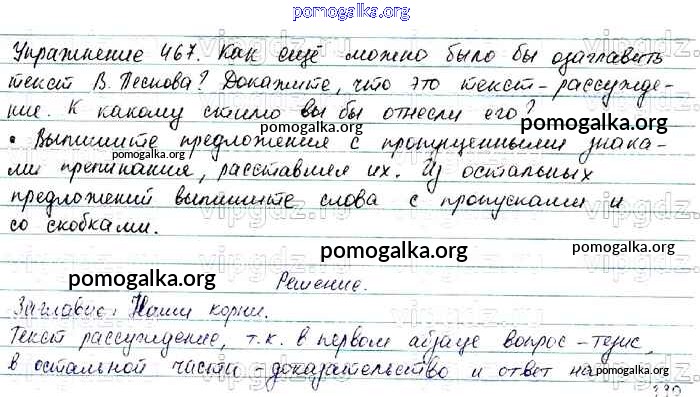 pomogalka.org
Упражнение 467. Как ещё можно было бы озаглавить
текст В. Пескова? Докажите, что это текст-рассужде-
ние. К какому стилю вы бы отнесли его?
pomogalka.org
pomogalka.org
• Выпишите предложения с пропущенными знака-
pomogalka.org
ми препинания, расставляя их. Из остальных
предложений выпишите слова с пропусками и
со скобками.
pomogalka.org
pomogalka.org
Решение.
Заглавие: Наши корни.
pomogalka.org
Текст рассуждение, т.к. в первом абзаце вопрос-тезис,
в остальной части - доказательство и ответ на
pomogalka.org